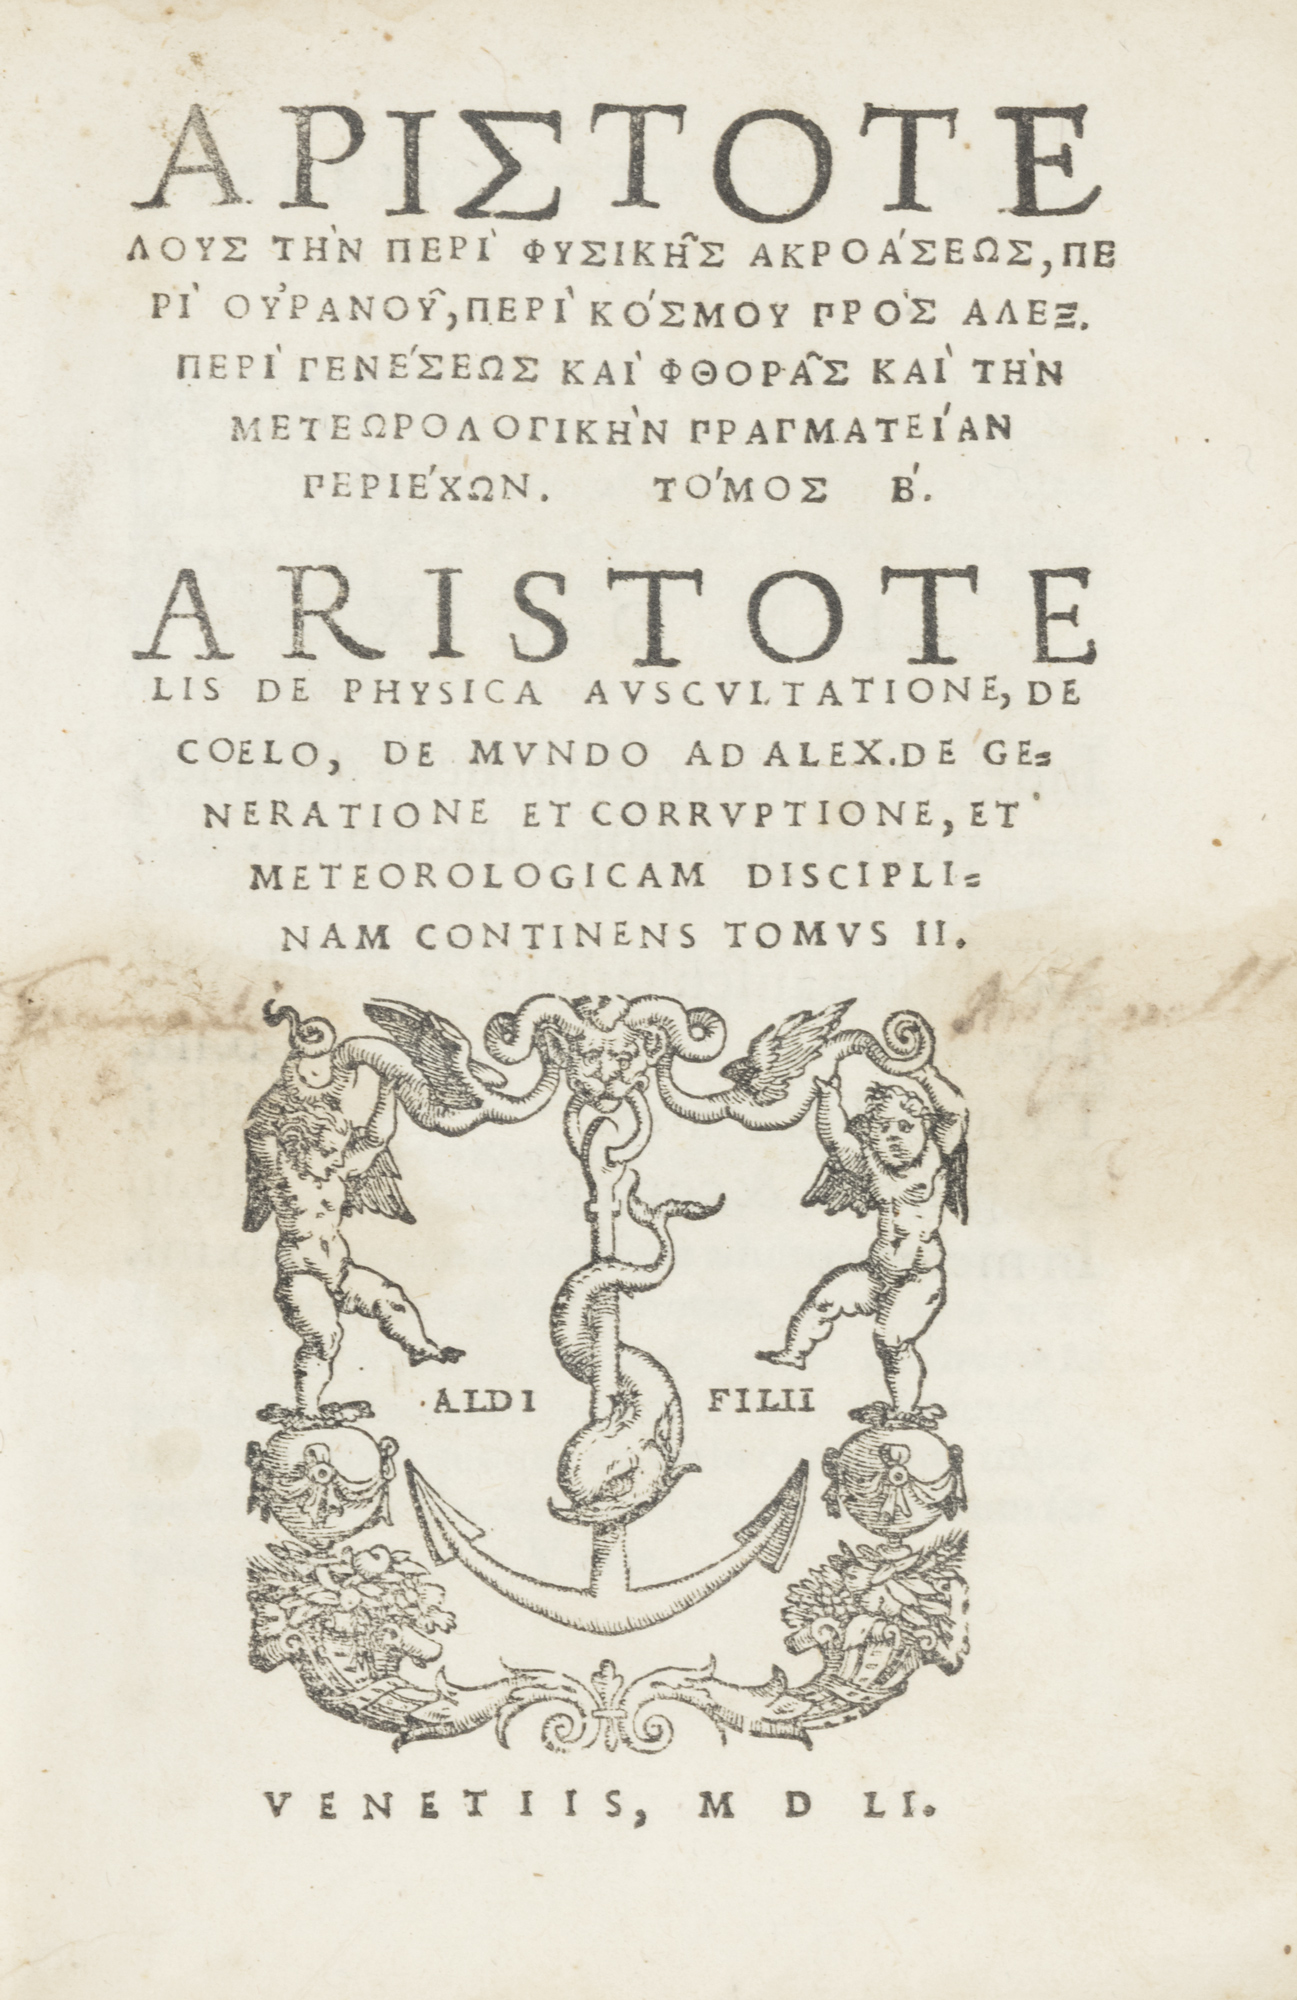 ΑΡΙΣΤΟΤΕ
ΛΟΥΣ ΤῊΝ ΠΕΡῚ ΦΥΣΙΚΗ͂Σ ΑΚΡΟΆΣΕΩΣ, ΠΕ
ΡῚ ΟΥ̓ΡΑΝΟΥ͂, ΠΕΡῚ ΚΌΣΜΟΥ ΠΡῸΣ ΑΛΕΞ.
ΠΕΡῚ ΓΕΝΈΣΕΩΣ ΚΑῚ ΦΘΟΡΑ͂Σ ΚΑῚ ΤῊΝ
ΜΕΤΕΩΡΟΛΟΓΙΚῊΝ ΠΡΑΓΜΑΤΕΊΑΝ
ΠΕΡΙΈΧΩΝ. ΤΌΜΟΣ Β́.
ARISTOTE
LIS DE PHYSICA AVSCVLTATIONE, DE
COELO, DE MVNDO AD ALEX. DE GE=
NERATIONE ET CORRVPTIONE, ET
METEOROLOGICAM DISCIPLI=
NAM CONTINENS TOMVS II.
ALDI FILII
VENETIIS, M D LI.